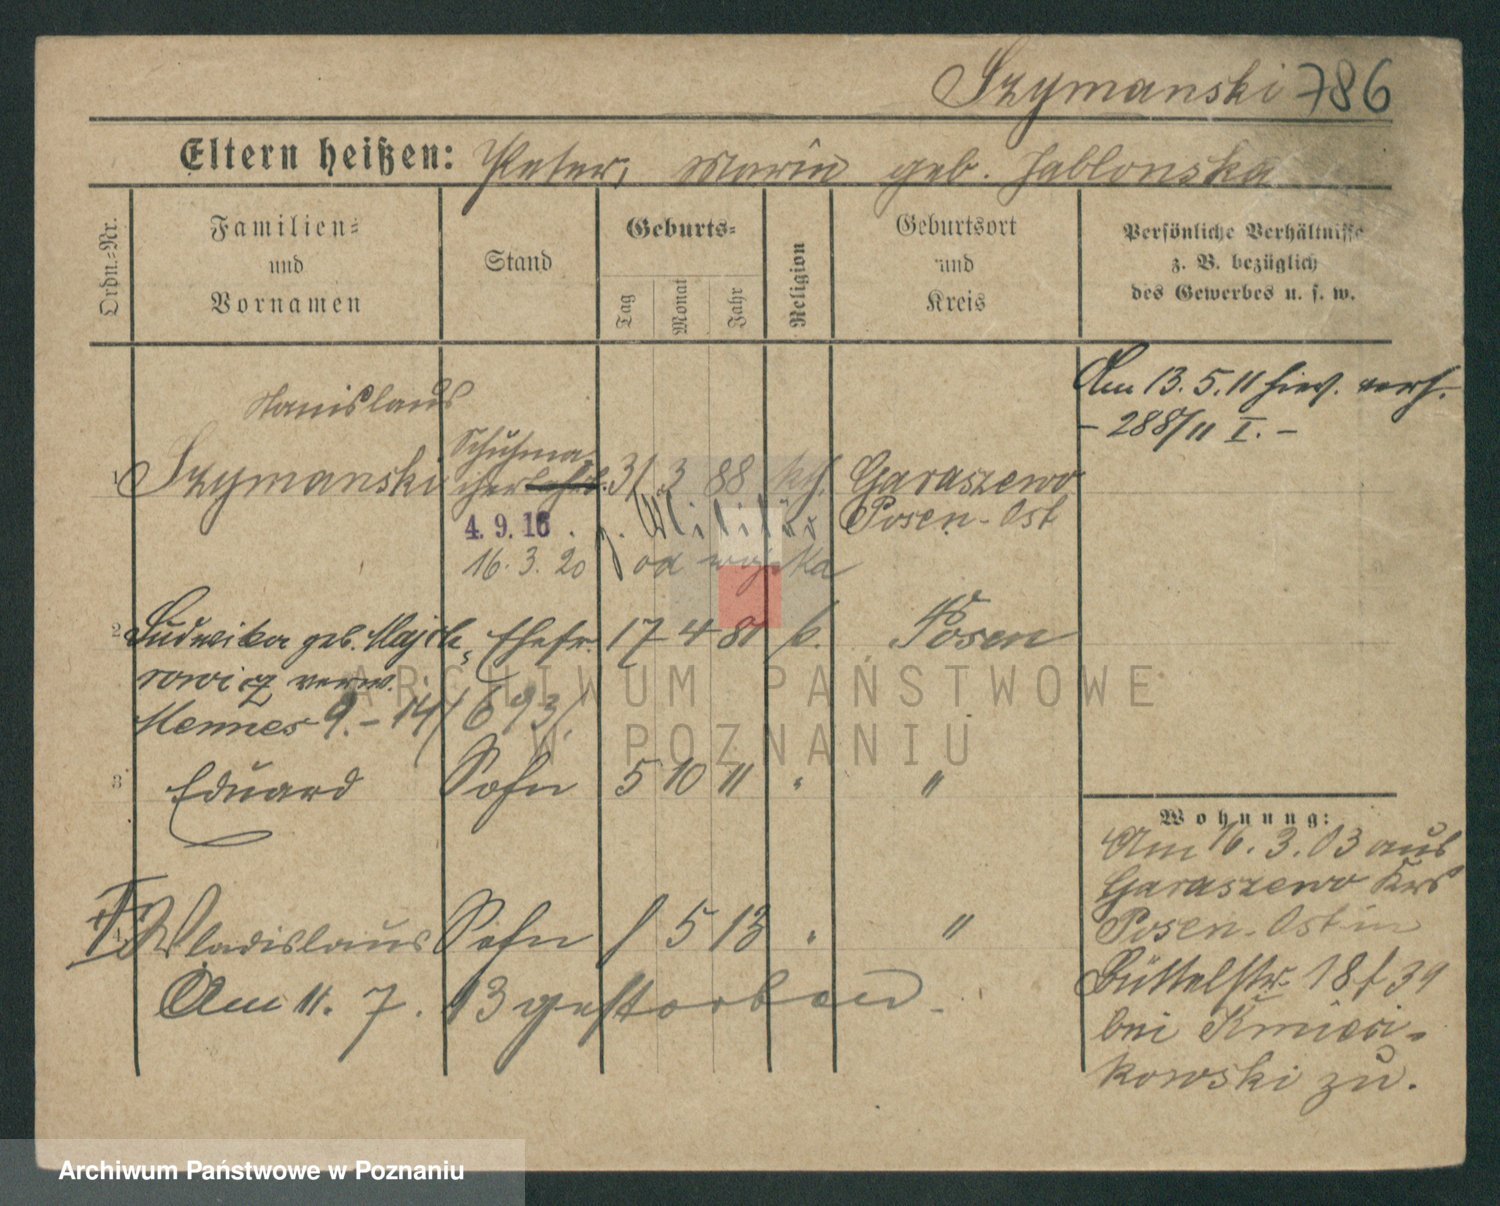 Szymanski 786
Eltern heißen: Peter, Maria geb. Jablonska
Ordn.=Nr.
Familien=
und
Vornamen
Stand
Geburts=
Tag
Monat
Jahr
Religion
Geburtsort
und
Kreis
Persönliche Verhältnisse
z. B. bezüglich
des Gewerbes u. s. w.
Am 13. 5. 11 hies. verh.
- 288/11 I. -
Stanislaus
1 Szymanski Schuhma-
cherlehrl. 31 3 88 kth. Garaszewo
Posen-Ost
4. 9. 16. z. Militär
16. 3. 20 od wojska
2 Ludwika geb. Majche- Ehefr. 17 4 81 k. Posen
rowicz verw.
Mennes 9.-14/1693/
3 Eduard Sohn 5 10 11 " "
4 Wladislaus Sohn 1 5 13 " "
Am 11. 7. 13 gestorben.
Wohnung:
Am 16. 3. 03 aus
Garaszewo Krs
Posen-Ost in
Büttelstr. 18 f 39
bei Kmieci-
kowski zu.
ARCHIWUM PAŃSTWOWE
W POZNANIU
Archiwum Państwowe w Poznaniu